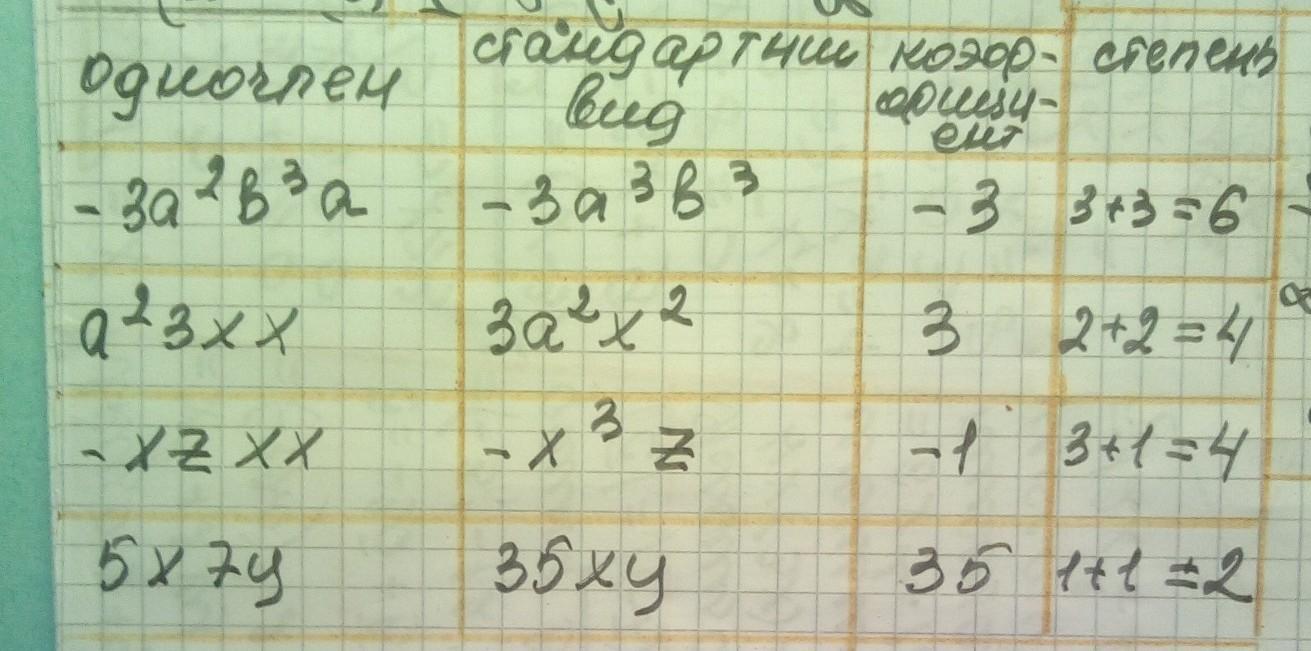 одночлен стандартный вид коэффициент степень
-3a²b³a -3a³b³ -3 3+3=6
a²3xx 3a²x² 3 2+2=4
-xzxx -x³z -1 3+1=4
5x7y 35xy 35 1+1=2